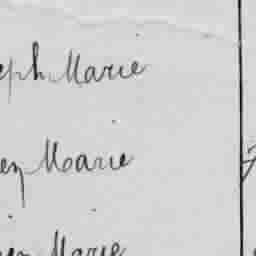 eph Marie
en Marie
en Marie